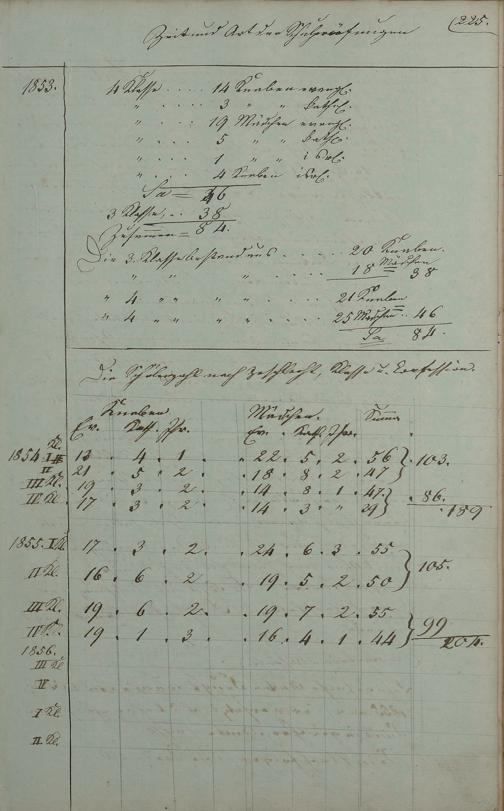 225.
Zeit und Art der Schulprüfungen
1853. 4 Klasse .... 14 Knaben evangl.
" .... 3 " " kathol.
" .... 19 Mädchen evangl.
" ... 5 " " kath.
" ... 1 " " isrl.
" .. 4 Knaben isrl.
Sa = 46
3 Klasse, .. 38
Zusammen = 84.
Die 3. Klasse bestand aus .... 20 Knaben.
" " " .... 18 Mädchen 38
" 4 " " " .... 21 Knaben
" 4 " " " .... 25 Mädchen .. 46
Sa 84.
Die Schülerzahl nach Geschlecht, Klasse u. Confession.
Knaben Mädchen. Summa
Ev. Kath. Isr. Ev. Kath. Isr.
Kl.
1854 I 13 . 4 . 1 22 . 5 . 2 . 56 } 103.
II 21 . 5 . 2 18 . 8 . 2 . 47
III Kl. 19 3 . 2 14 . 8 . 1 . 47. } 86.
IV Kl. 17 . 3 . 2 14 . 3 . " 39 189
1855. I Kl. 17 . 3 . 2. 24 . 6 . 3 . 55 } 105.
II Kl. 16 . 6 . 2 19 . 5 . 2 . 50
III Kl. 19 . 6 . 2. 19 . 7 . 2 . 55 } 99
IV Kl. 19 . 1 . 3 . 16 . 4 . 1 . 44 204.
1856.
III Kl.
I Kl.
II Kl.